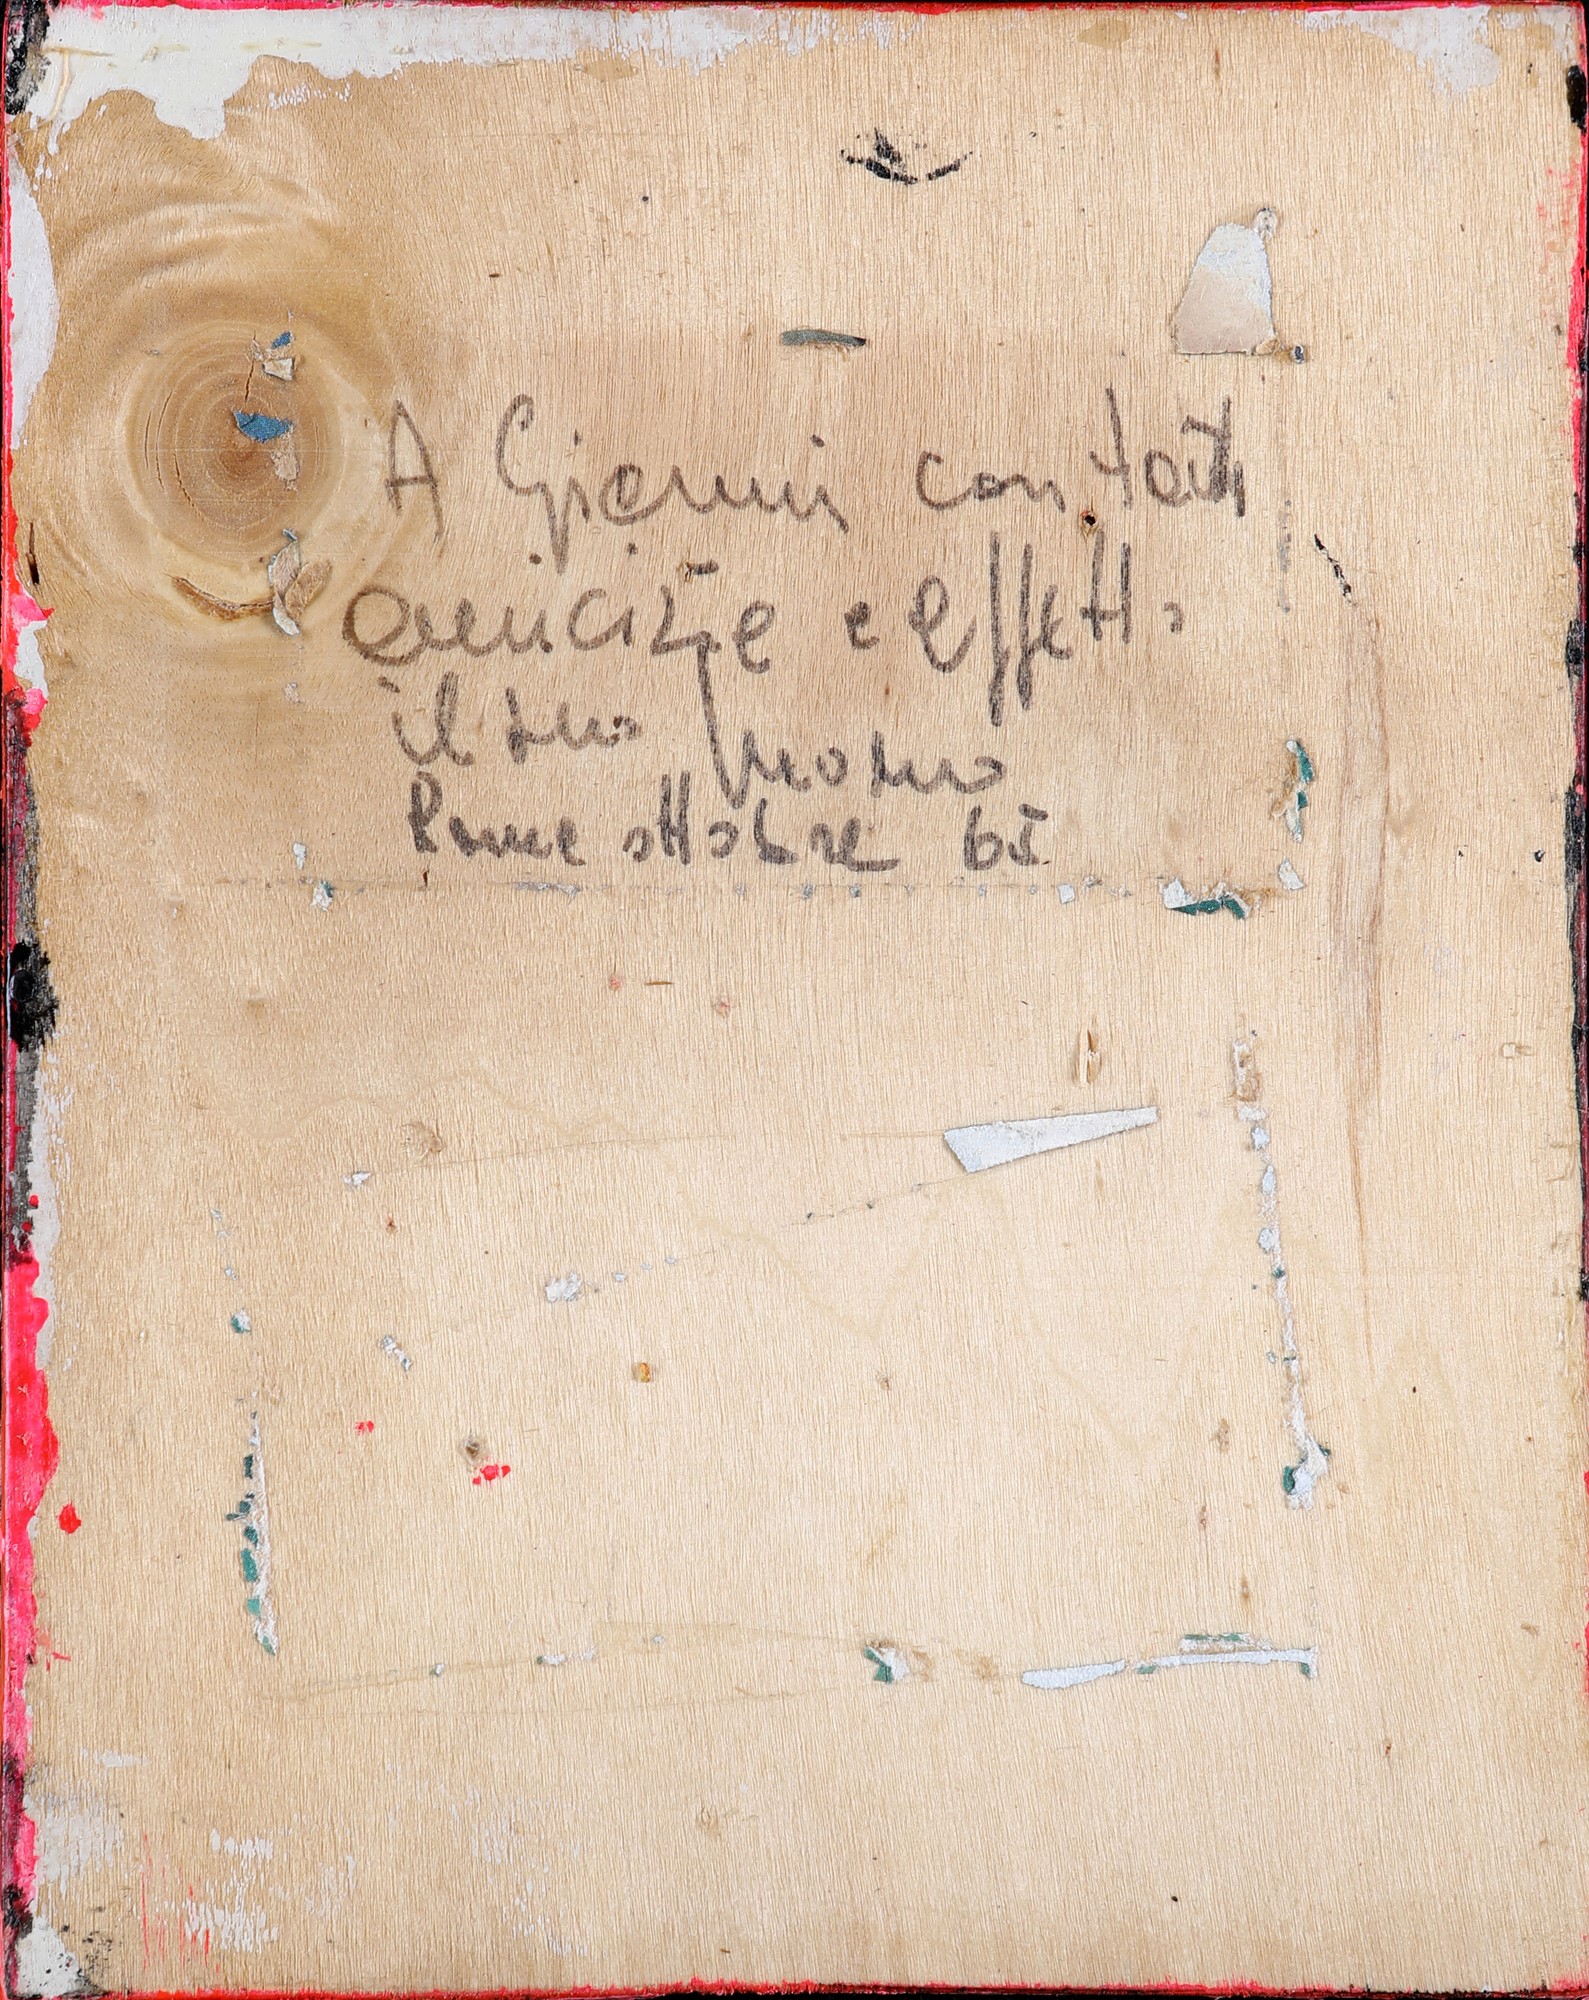 A Gianni con
amicizia e affetto
il tuo
Roma ottobre 65